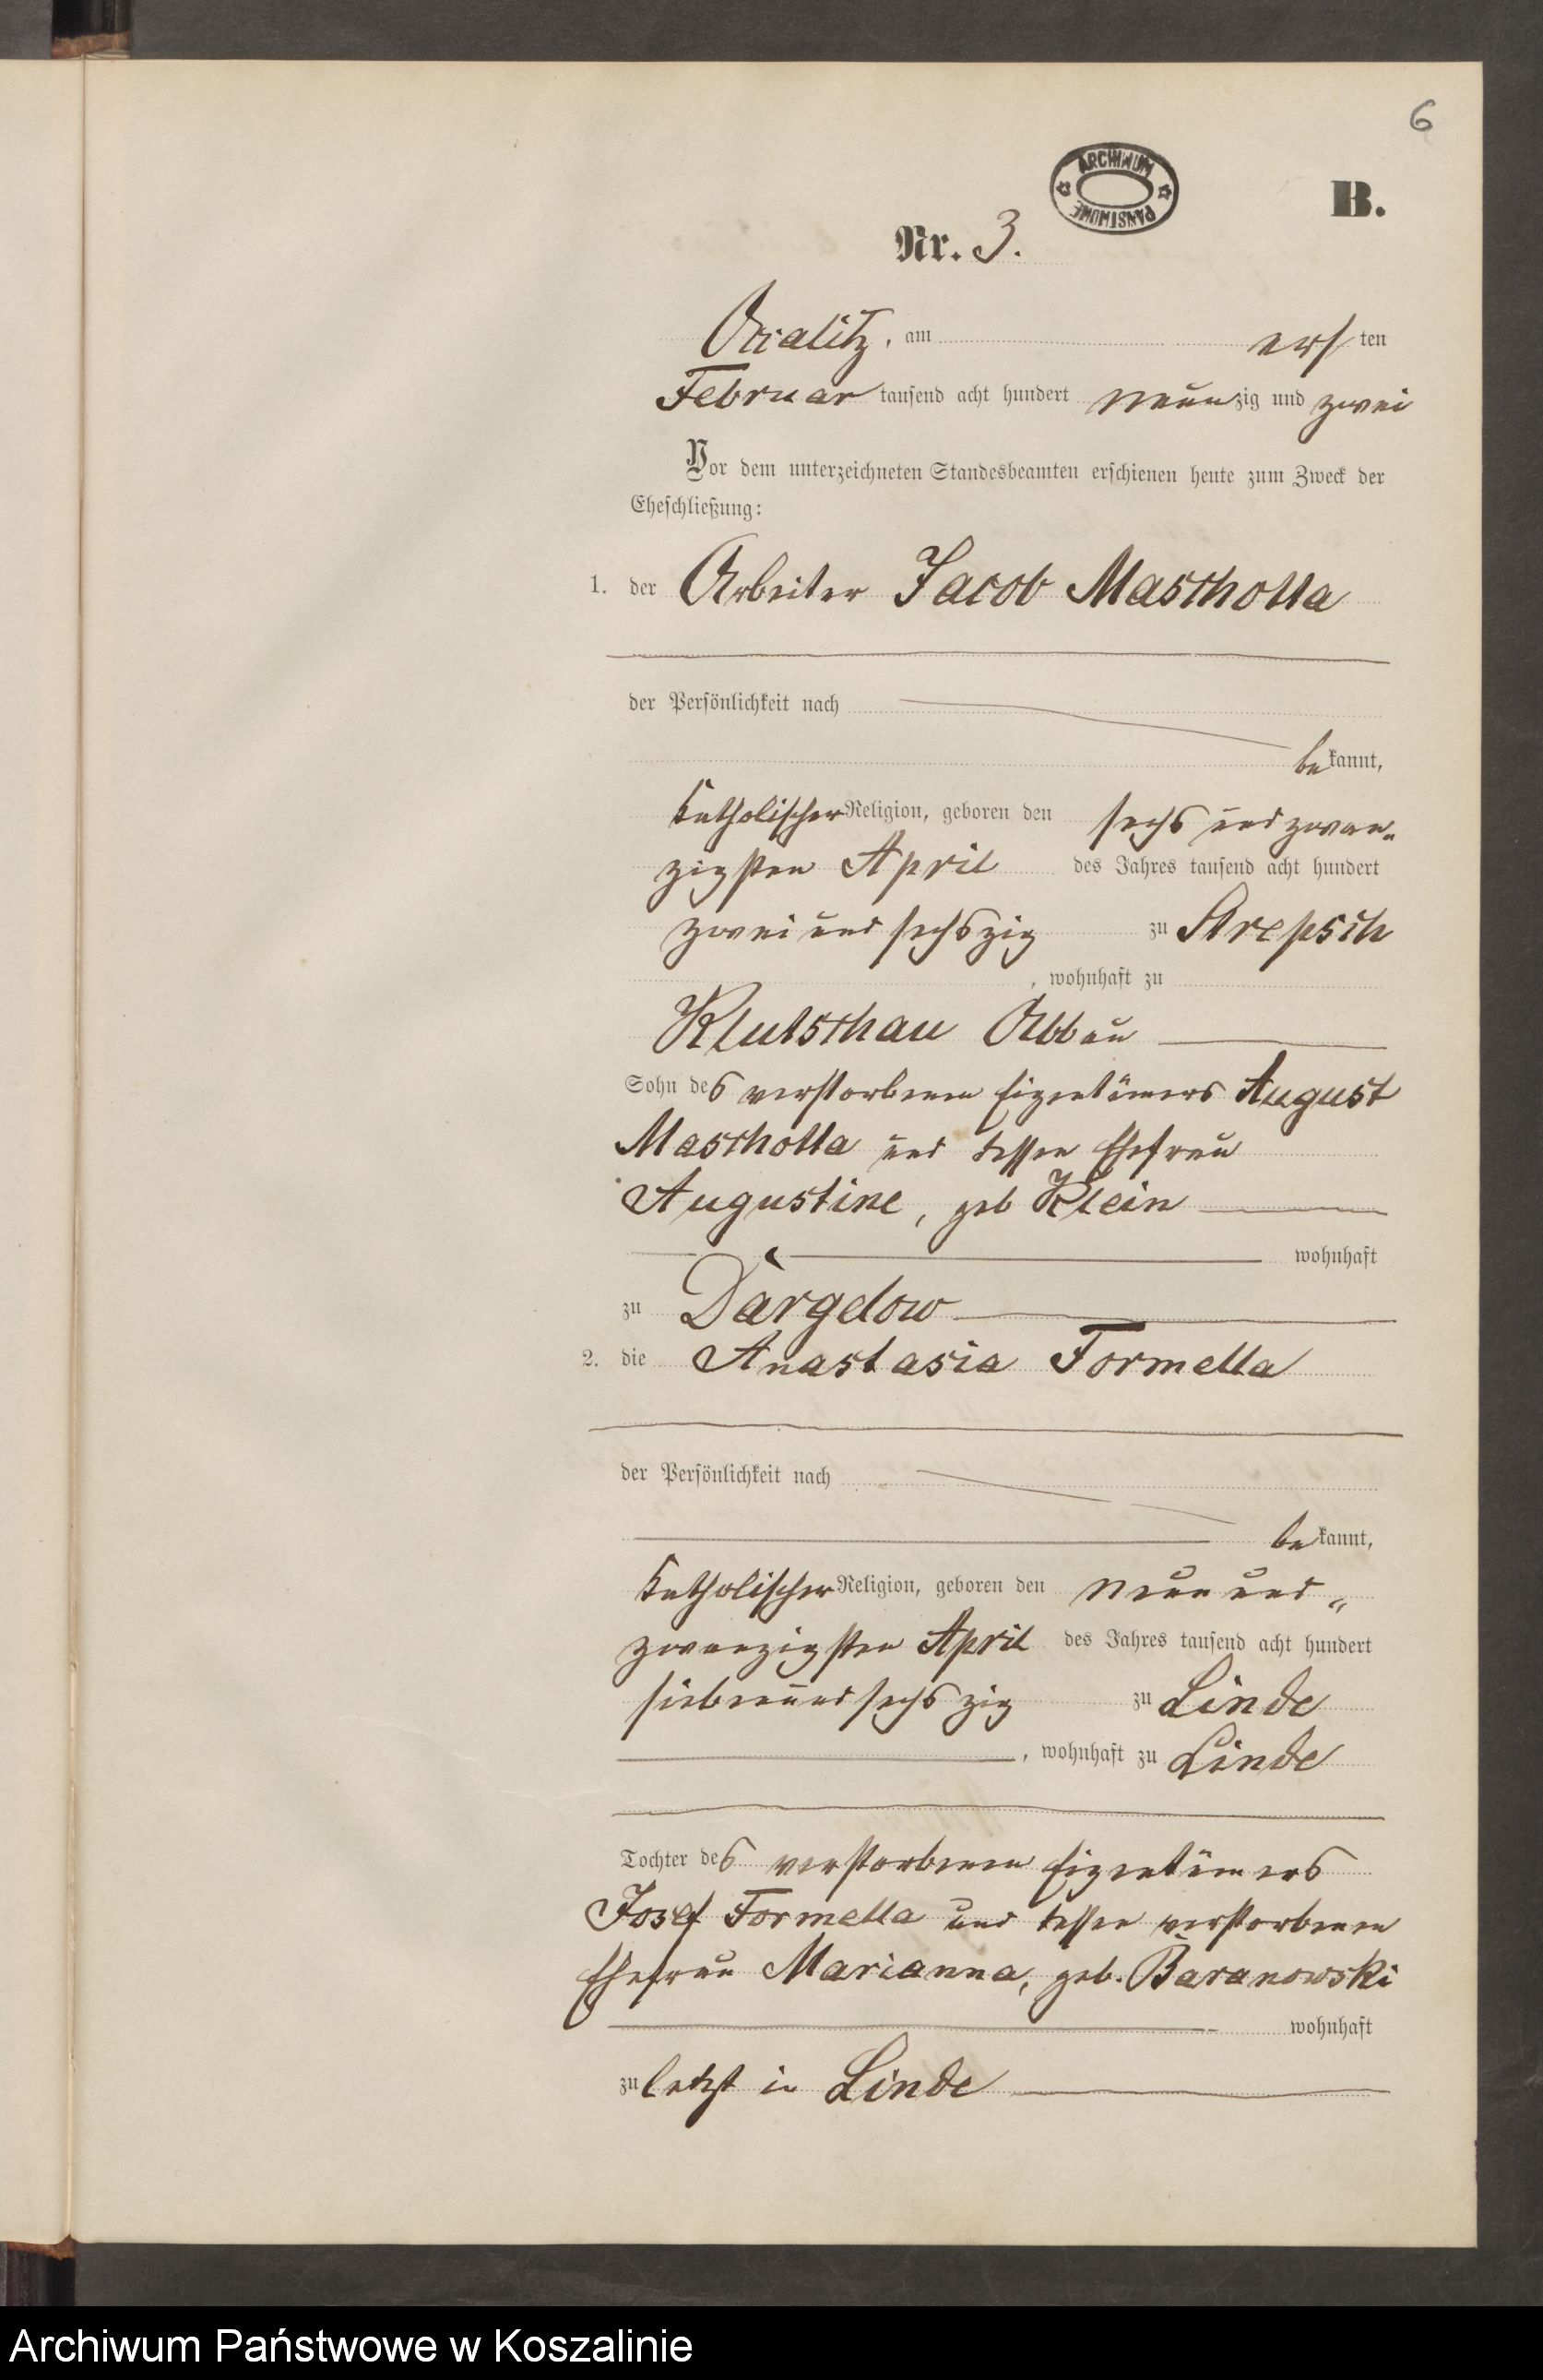 6
ARCHIWUM PAŃSTWOWE
B.
Nr. 3.
Ocalitz, am ersten
Februar tausend acht hundert neunzig und zwei
Vor dem unterzeichneten Standesbeamten erschienen heute zum Zweck der
Eheschließung:
1. der Arbeiter Jacob Maschotta
der Persönlichkeit nach
bekannt,
katholischer Religion, geboren den sechs und zwan-
zigsten April des Jahres tausend acht hundert
zwei und sechszig zu Strepsch
, wohnhaft zu
Klutschau Abbau
Sohn des verstorbenen Eigentümers August
Maschotta und dessen Ehefrau
Augustine, geb Klein
wohnhaft
zu Dargelow
2. die Anastasia Formella
der Persönlichkeit nach
bekannt,
katholischer Religion, geboren den neun und
zwanzigsten April des Jahres tausend acht hundert
siebenundsechszig zu Linde
, wohnhaft zu Linde
Tochter des verstorbenen Eigentümers
Josef Formella und dessen verstorbenen
Ehefrau Marianna, geb. Baranowski
wohnhaft
zuletzt in Linde
Archiwum Państwowe w Koszalinie